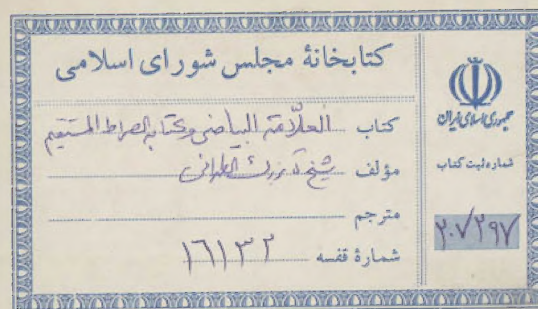 کتابخانهٔ مجلس شورای اسلامی
کتاب العلّامة البیاضی وکتابه الصراط المستقیم
مؤلف شیخ آقا بزرگ الطهرانی
مترجم
شمارهٔ قفسه ۱۶۱۳۲
جمهوری اسلامی ایران
شماره ثبت کتاب
۲۰۷۲۹۷